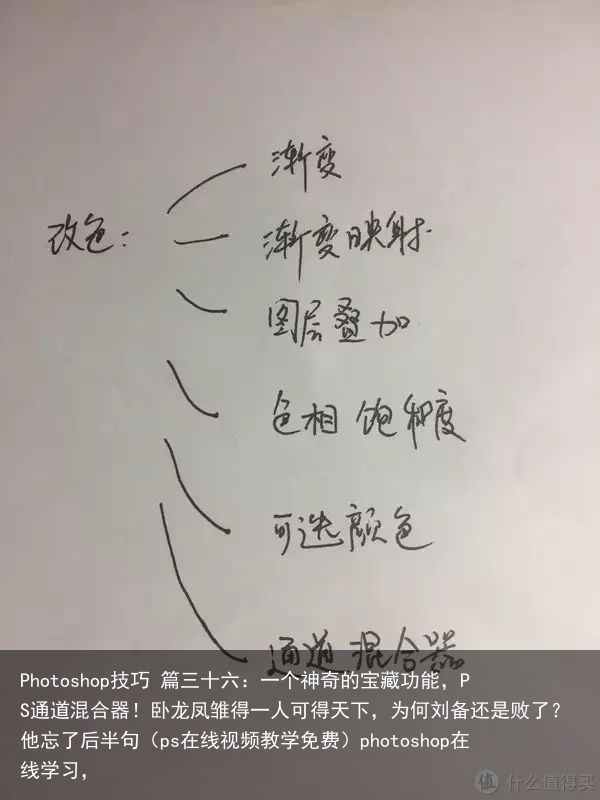 渐变
改色：
渐变映射
图层叠加
色相 饱和度
可选颜色
通道混合器
Photoshop技巧 篇三十六：一个神奇的宝藏功能，P
S通道混合器！卧龙凤雏得一人可得天下，为何刘备还是败了？
他忘了后半句（ps在线视频教学免费）photoshop在
线学习，
值 什么值得买